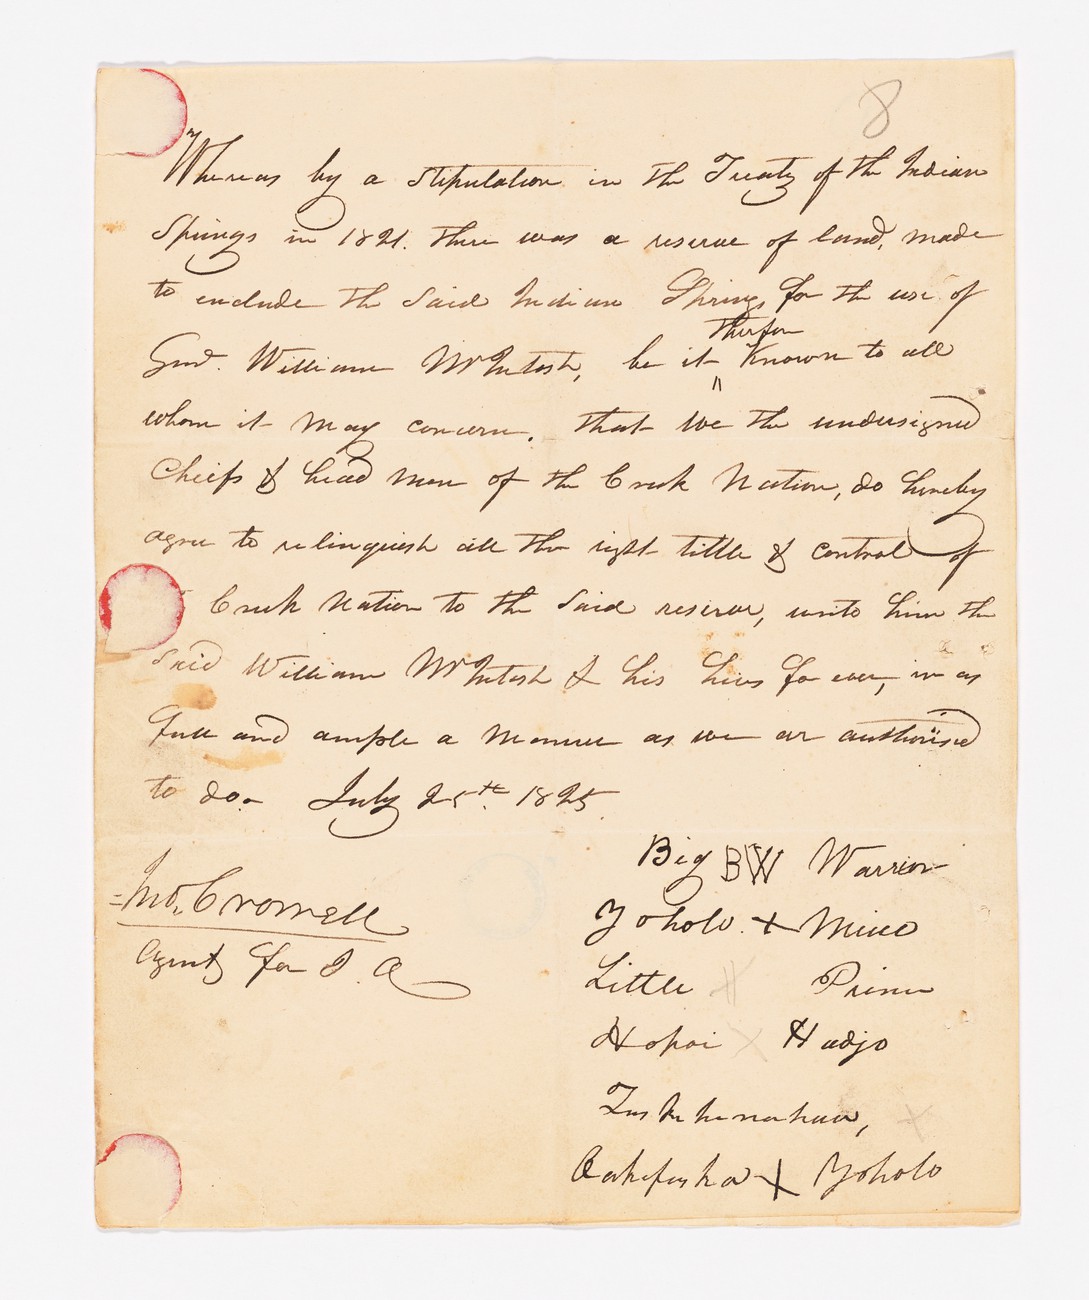 8
Whereas by a stipulation in the Treaty of the Indian
Springs in 1821. there was a reserve of land, made
to enclude the said Indian Springs for the use of
therfor
Genl. William McIntosh, be it Known to all
whom it may concern, that we the undersigned
Chiefs & head men of the Creek Nation, do hereby
agree to relinquish all the right tittle & control of
Creek Nation to the said reserve, unto him the
said William McIntosh & his heirs for ever, in as
full and ample a manner as we are authorised
to do. July 25th. 1825.
Big BW Warrior
Jno. Crowell
Yoholo. X Micco
Agent for I. A
Little X Prince
Hopoi X Hadjo
X
Oakefuska X Yoholo